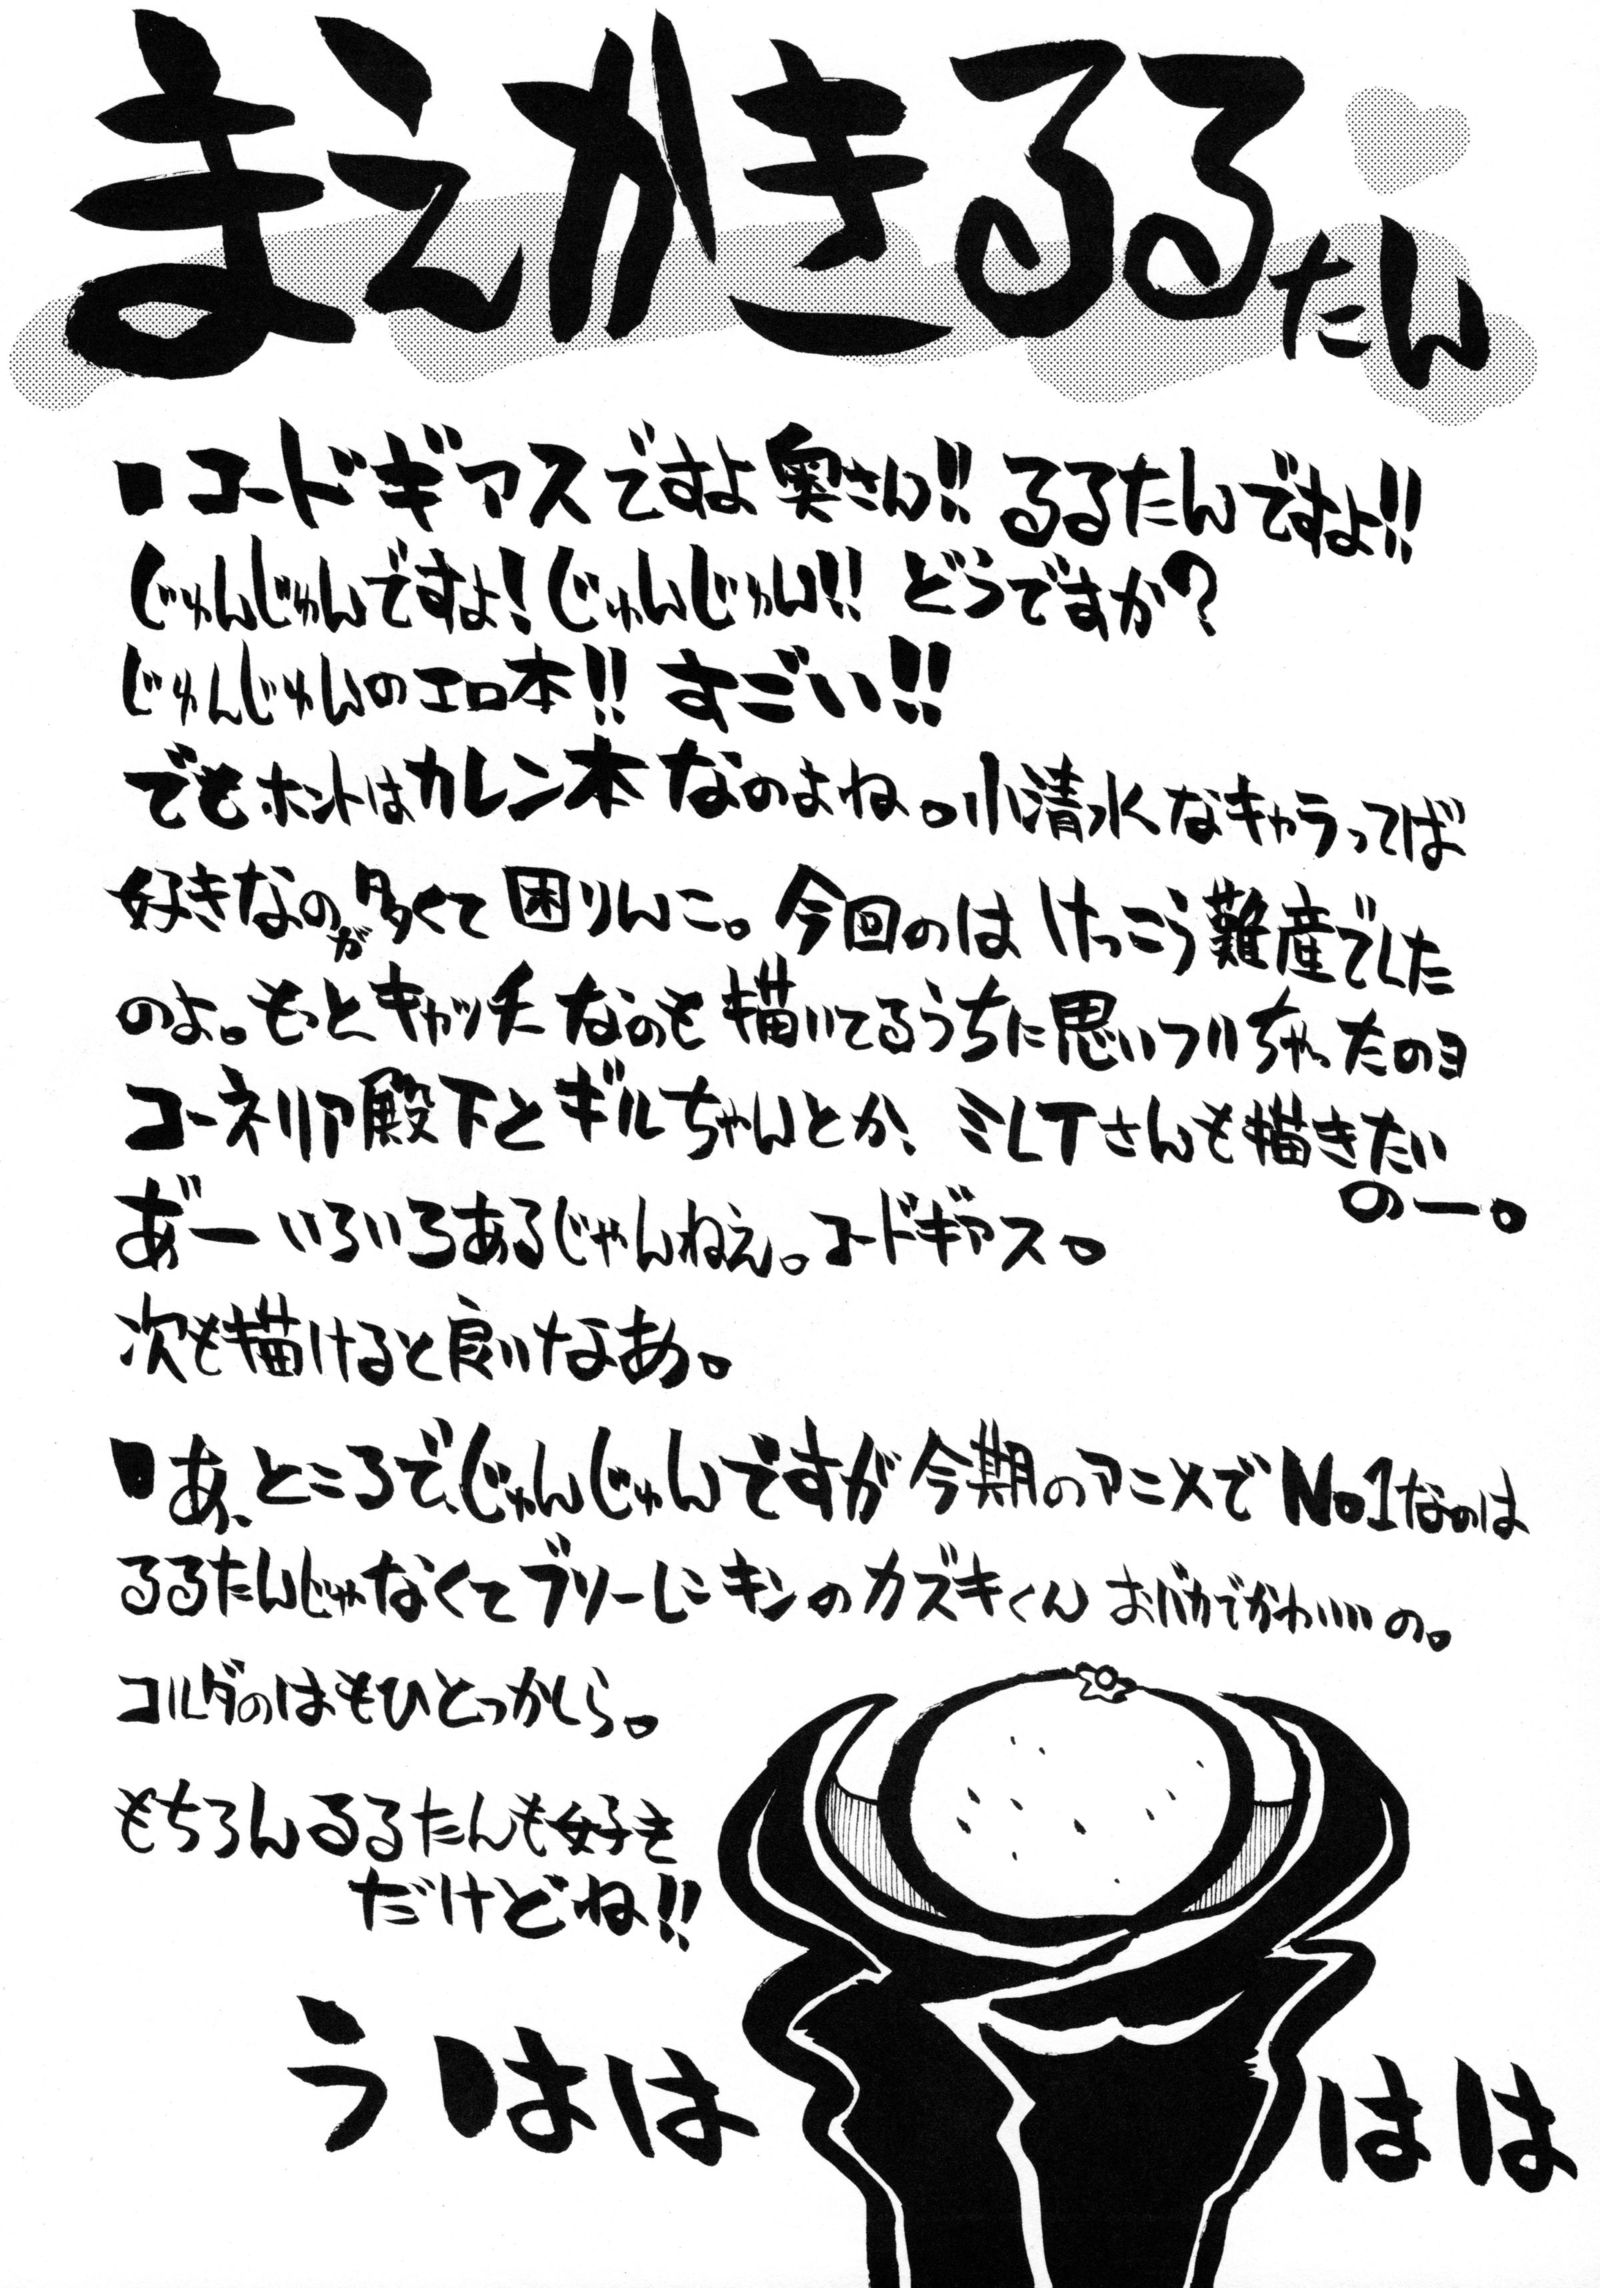 まえかきるるたん
■コードギアスですよ奥さん!! るるたんですよ!!
じゅんじゅんですよ!じゅんじゅん!! どうですか?
じゅんじゅんのエロ本!! すごい!!
でもホントはカレン本なのよね。小清水なキャラってば
好きなのが多くて困りんこ。今回のはけっこう難産でした
のよ。もっとキャッチなのも描いてるうちに思いついちゃったのヨ
コーネリア殿下とギルちゃんとか、ミレイさんも描きたい
のー。
あ゛ーいろいろあるじゃんねえ。コードギアス。
次も描けると良いなあ。
■あ、ところで、じゅんじゅんですが今期のアニメでNo.1なのは
るるたんじゃなくてブリーレーンキンのカズキくんおバカでかわいいの。
コルダのはもひとつかしら。
もちろんるるたんも好き
だけどね!!
うははははは